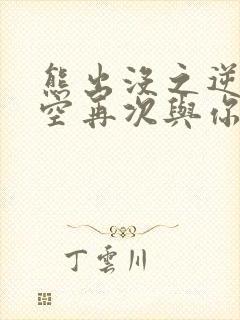 熊出没之逆
空再次與你
丁雲川